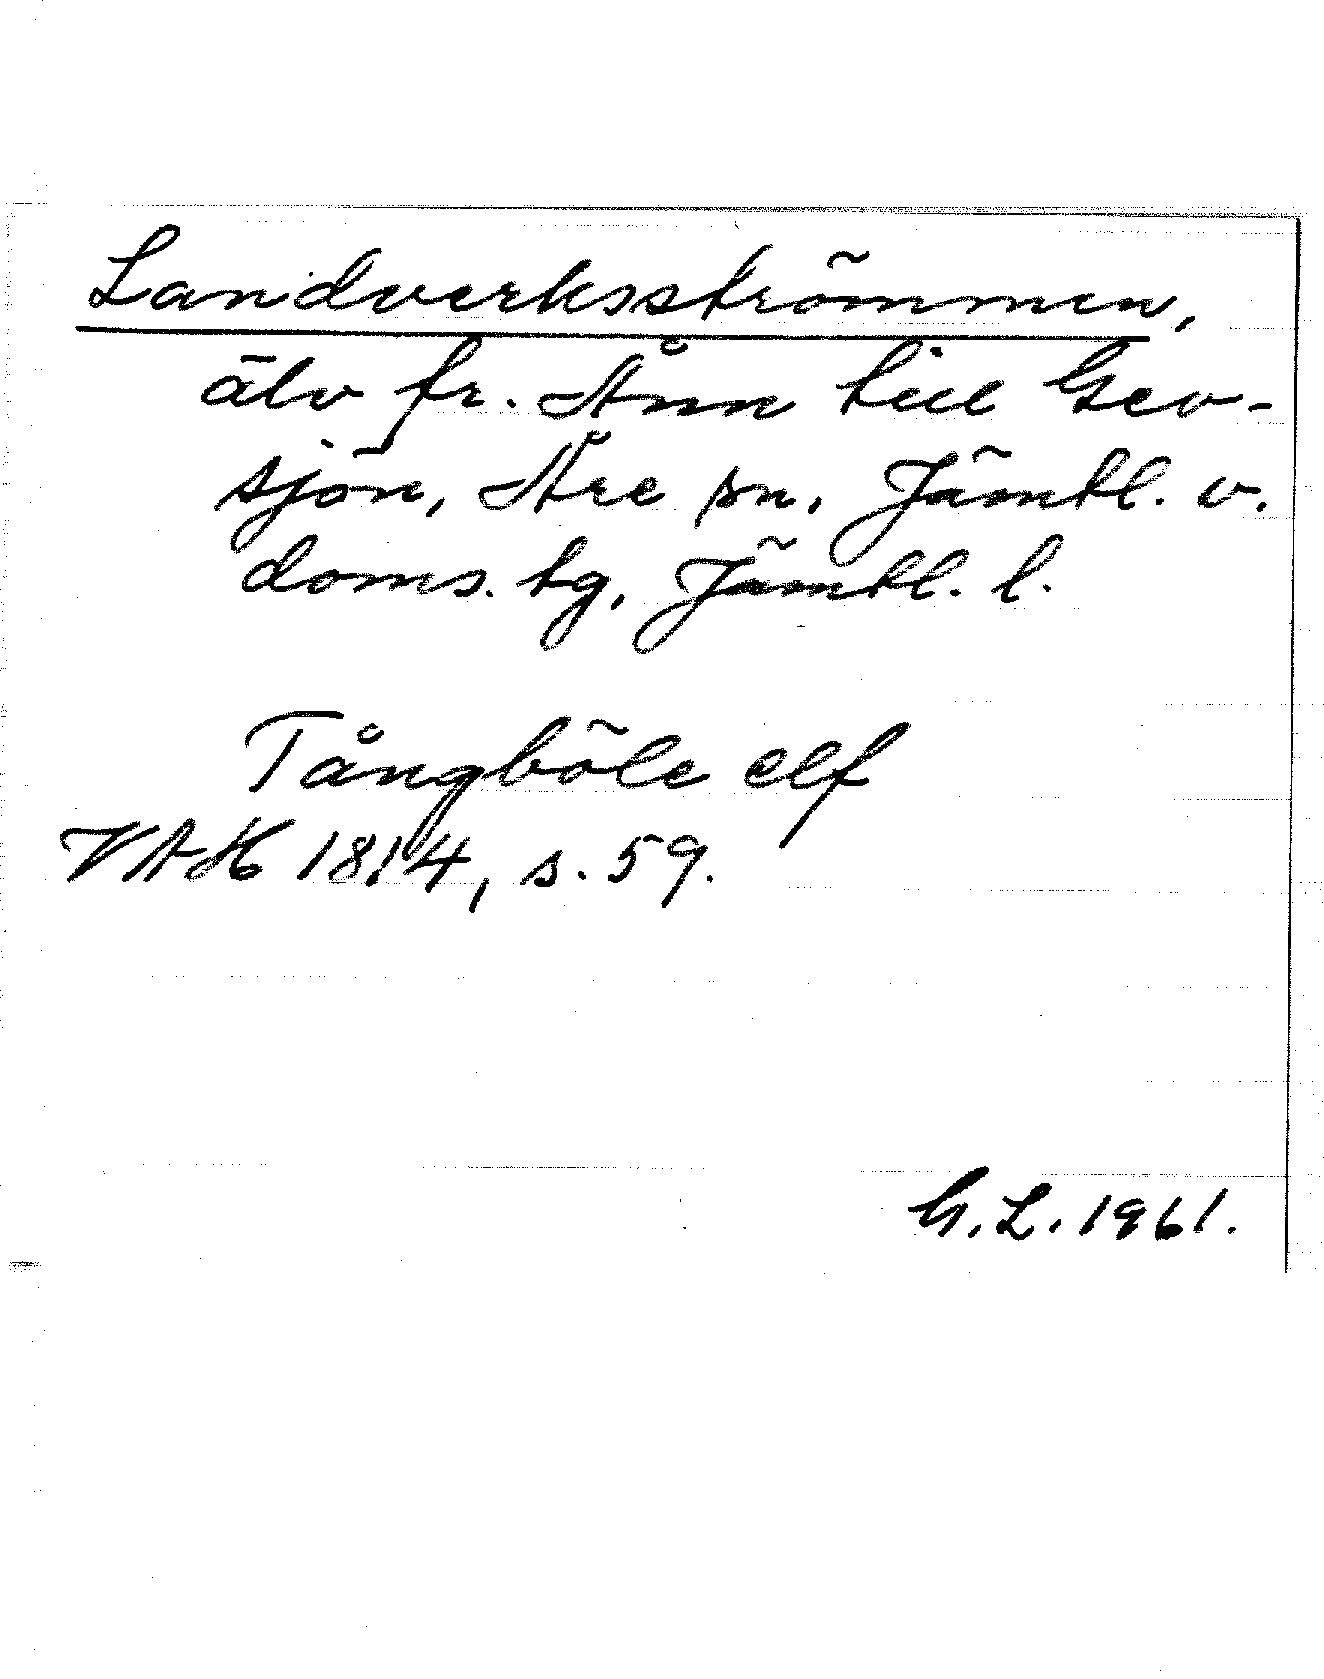 Landverksströmmen,
älv fr. Ånn till Gev-
sjön, Åre sn, Jämtl. v.
doms. tg, Jämtl. l.
Tångböle elf
VAH 1814, s. 59.
G. L. 1961.